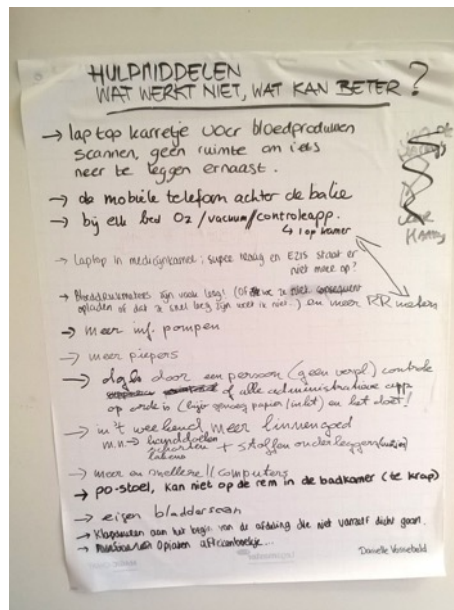 HULPMIDDELEN
WAT WERKT NIET, WAT KAN BETER?
→ laptop karretje voor bloedprodukten
scannen, geen ruimte om iets
neer te leggen ernaast.
→ de mobiele telefoon achter de balie
→ bij elk bed O2/vacuum/controleapp.
↳ 1 op kamer
→ Laptop in medicijnkamer; super traag en EZIS staat er
niet meer op?
→ Bloeddrukmeters zijn vaak leeg! (Of we ze niet consequent
opladen of dat ze snel leeg zijn weet ik niet..) en meer RR meters
→ meer inf. pompen
→ meer piepers
→ dgls door een persoon (geen verpl.) controle
of alle administratieve app
op orde is (bijv genoeg papier/inkt) en het doet!
→ in 't weekend, meer linnengoed
m.n. → handdoeken
schorten + stoffen onderleggers
lakens
→ meer en snellere!! computers
→ po-stoel, kan niet op de rem in de badkamer (te krap)
→ eigen bladderscan
→ Klapdeuren aan het begin van de afdeling die niet vanzelf dicht gaan.
→ Opiaten aftekenboekje...